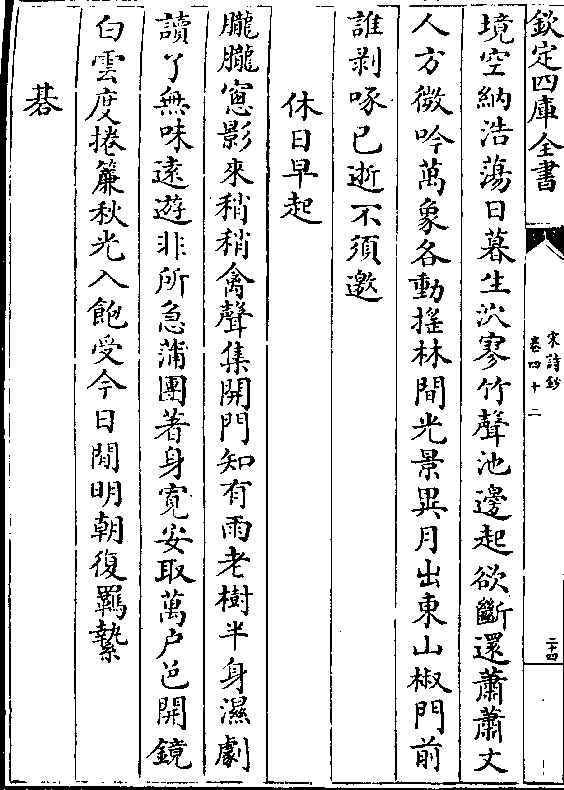 欽定四庫全書
宋詩鈔
卷四十二
二十四
境空納浩蕩日暮生泬寥竹聲池邊起欲斷還蕭蕭丈
人方微吟萬象各動搖林間光景異月出東山椒門前
誰剥啄已逝不須邀
休日早起
朧朧窓影來稍稍禽聲集開門知有雨老樹半身濕劇
讀了無味遠遊非所急蒲團著身寛安取萬户邑開鏡
白雲度捲簾秋光入飽受今日閒明朝復羈縶
碁